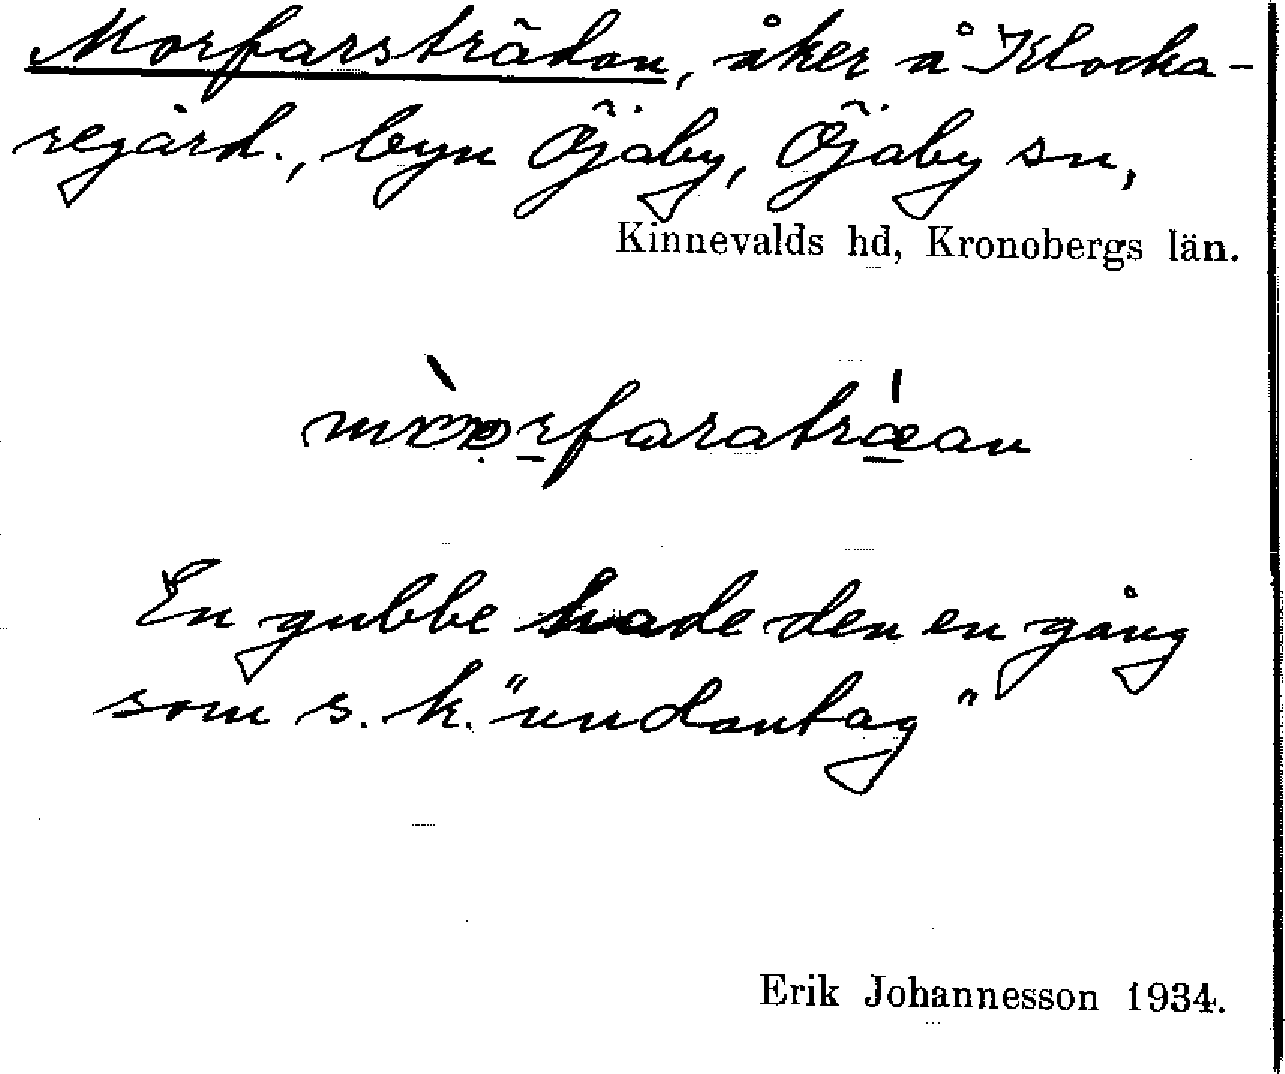 Morfarsträdan, åker å Klocka-
regård., byn Öjaby, Öjaby sn,
Kinnevalds hd, Kronobergs län.
En gubbe hade den en gång
som s. k. "undantag"
Erik Johannesson 1934.